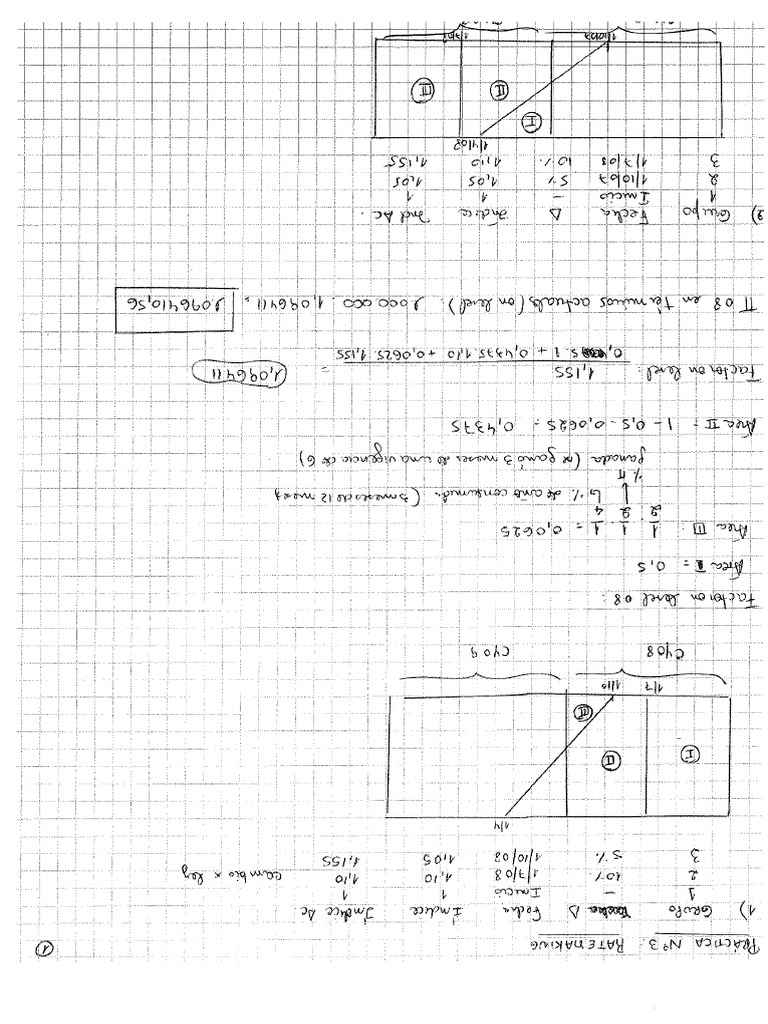 PRÁCTICA Nº 3. RATEMAKING
①
1) GRUPO Δ Fecha Índice Índice Ac
1 - Inicio 1 1
2 10% 1/7/08 1,10 1,10 cambio x ley
3 5% 1/10/08 1,05 1,155
1/4
I II III
1/7 1/10
CY08 CY09
Factor on level 08:
Área I = 0,5
Área III: 1/2 · 1/2 · 1/4 = 0,0625
↳ % de año consumido. (3 meses de 12 meses)
% Π
ganada (se ganó 3 meses de una vigencia de 6)
Área II = 1 - 0,5 - 0,0625 = 0,4375
Factor on level: 1,155
0,5.1 + 0,4375.1,10 + 0,0625.1,155
= 1,096411
Π 08 en términos actuales (on level): 2000 000 . 1,096411 = 2.096410,56
2) Grupo Fecha Δ Índice Ind Ac.
1 Inicio - 1 1
2 1/10/07 5% 1,05 1,05
3 1/7/08 10% 1,10 1,155
1/4/08
I II III
1/10/07 1/7/08